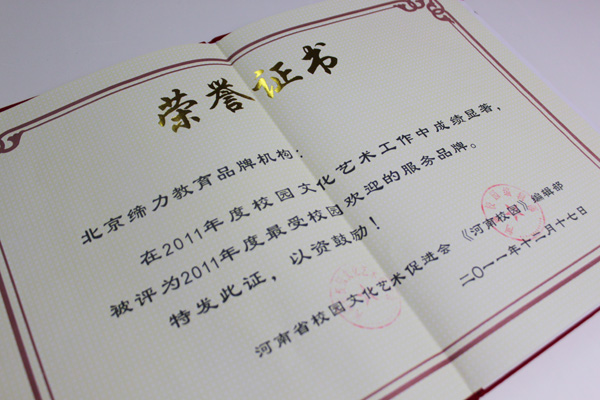 荣誉证书
北京缔力教育品牌机构：
在2011年度校园文化艺术工作中成绩显著，
被评为2011年度最受校园欢迎的服务品牌。
特发此证，以资鼓励！
河南省校园文化艺术促进会 《河南校园》编辑部
二〇一一年十二月十七日